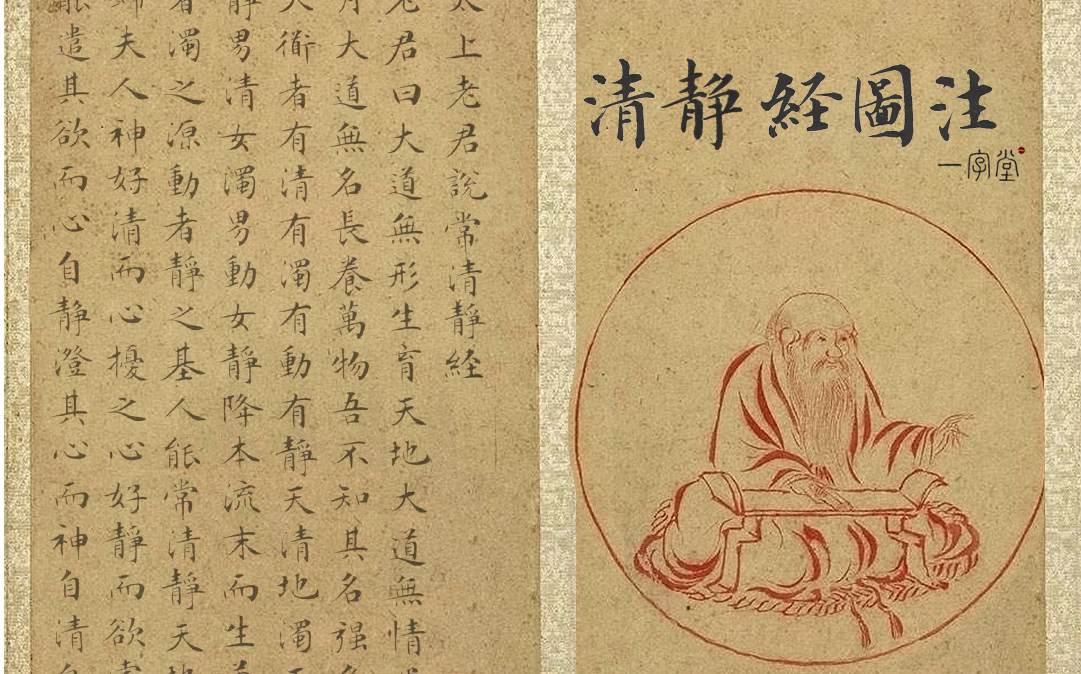 清静経圖注
一字堂
太上老君說常清靜経
老君曰大道無形生育天地大道無情
月大道無名長養萬物吾不知其名强名
夫衜者有清有濁有動有靜天清地濁天
靜男清女濁男動女靜降本流末而生萬
者濁之源動者靜之基人能常清靜天地
歸夫人神好清而心擾之心好靜而欲牽
能遣其欲而心自静澄其心而神自清自